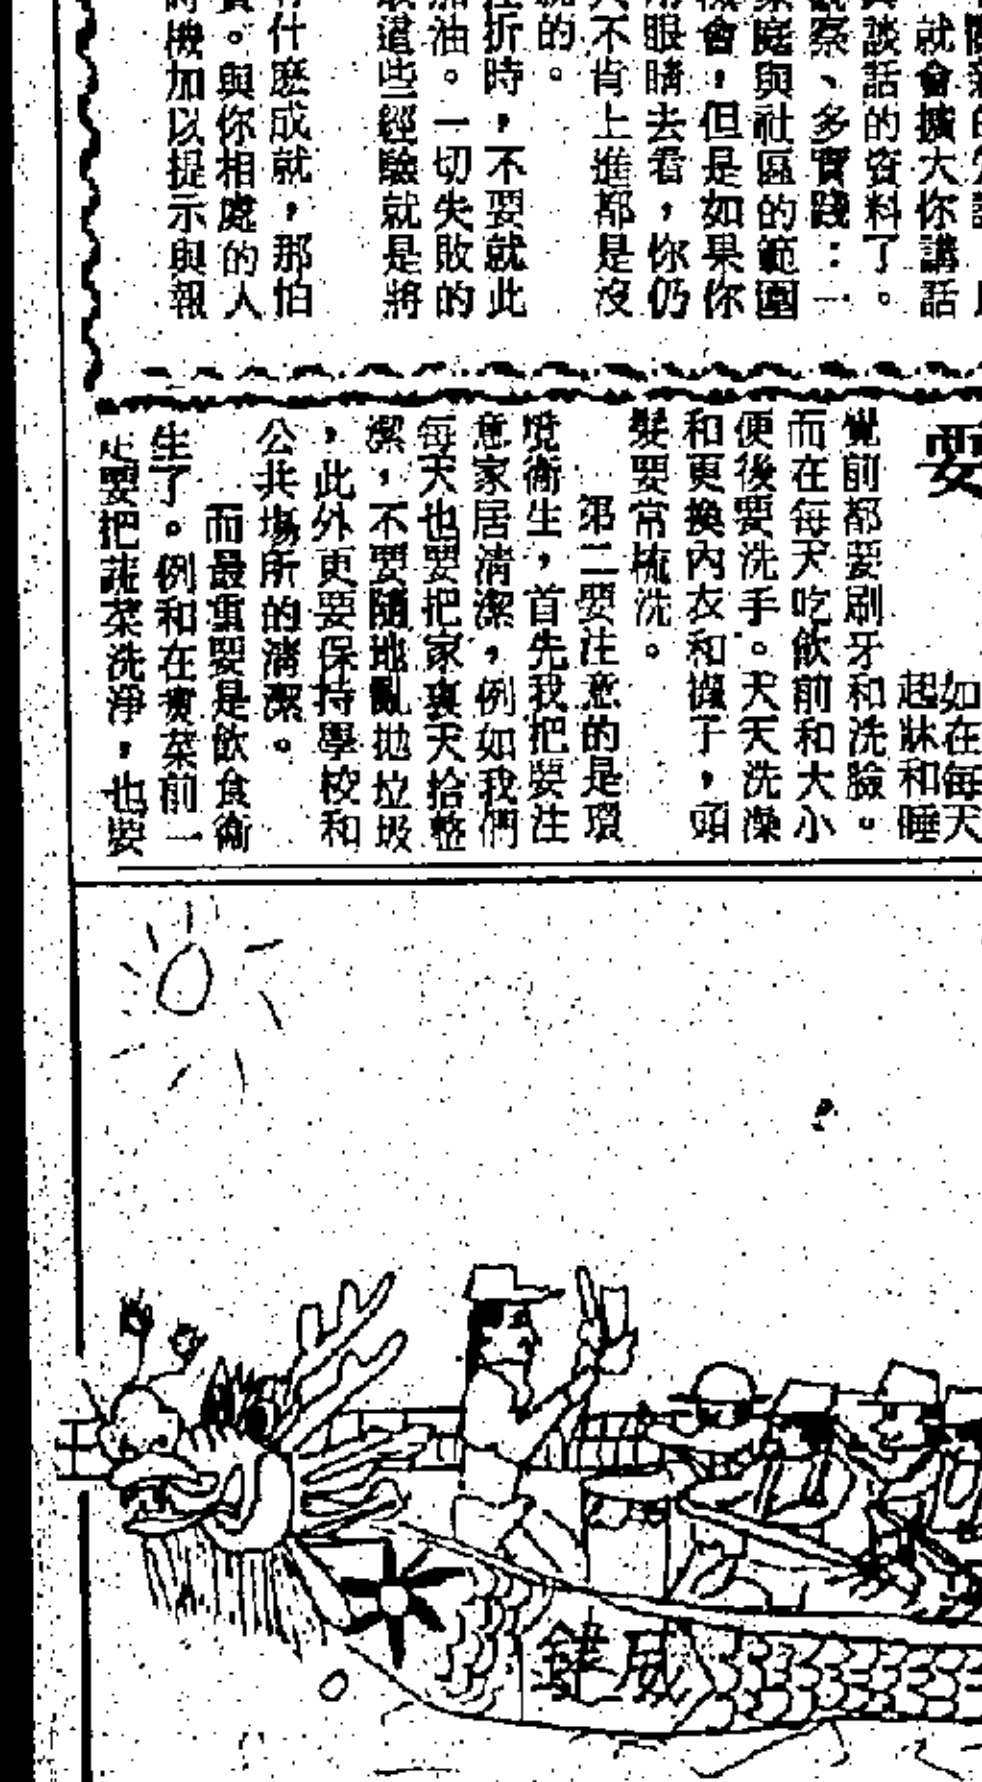 就會擴大你講話
談話的資料了。
察、多實踐：一
庭與社區的範圍
機會，但是如果你
用眼睛去看，你仍
不肯上進都是沒
的。
折時，不要就此
加油。一切失敗的
這些經驗就是將
什麼成就，那怕
。與你相處的人
時機加以提示與報
要
如在每天
起牀和睡
覺前都要刷牙和洗臉。
而在每天吃飲前和大小
便後要洗手。天天洗澡
和更換內衣和襪子，頭
髮要常梳洗。
第二要注意的是環
境衛生，首先我把要注
意家居清潔，例如我們
每天也要把家裏天拾整
潔，不要隨地亂拋垃圾
，此外更要保持學校和
公共場所的清潔。
而最重要是飲食衞
生了。例和在煑菜前一
定要把蔬菜洗淨，也要
威